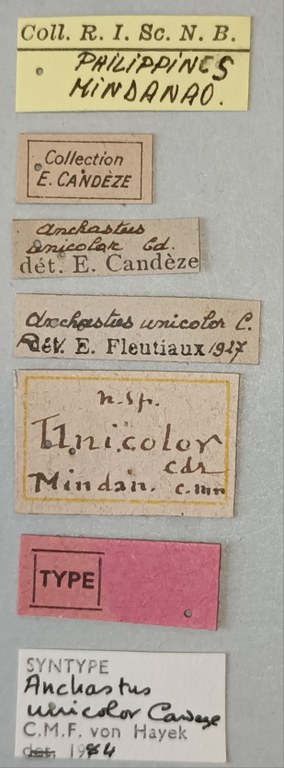 Coll. R. I. Sc. N. B.
PHILIPPINES
MINDANAO.
Collection
E. CANDÈZE
Anchastus
unicolor Cd.
dét. E. Candèze
Anchastus unicolor C.
Rév. E. Fleutiaux 1927
n. sp.
Unicolor
cdz
Mindan. C. Mn
TYPE
SYNTYPE
Anchastus
unicolor Candeze
C.M.F. von Hayek
det. 1984